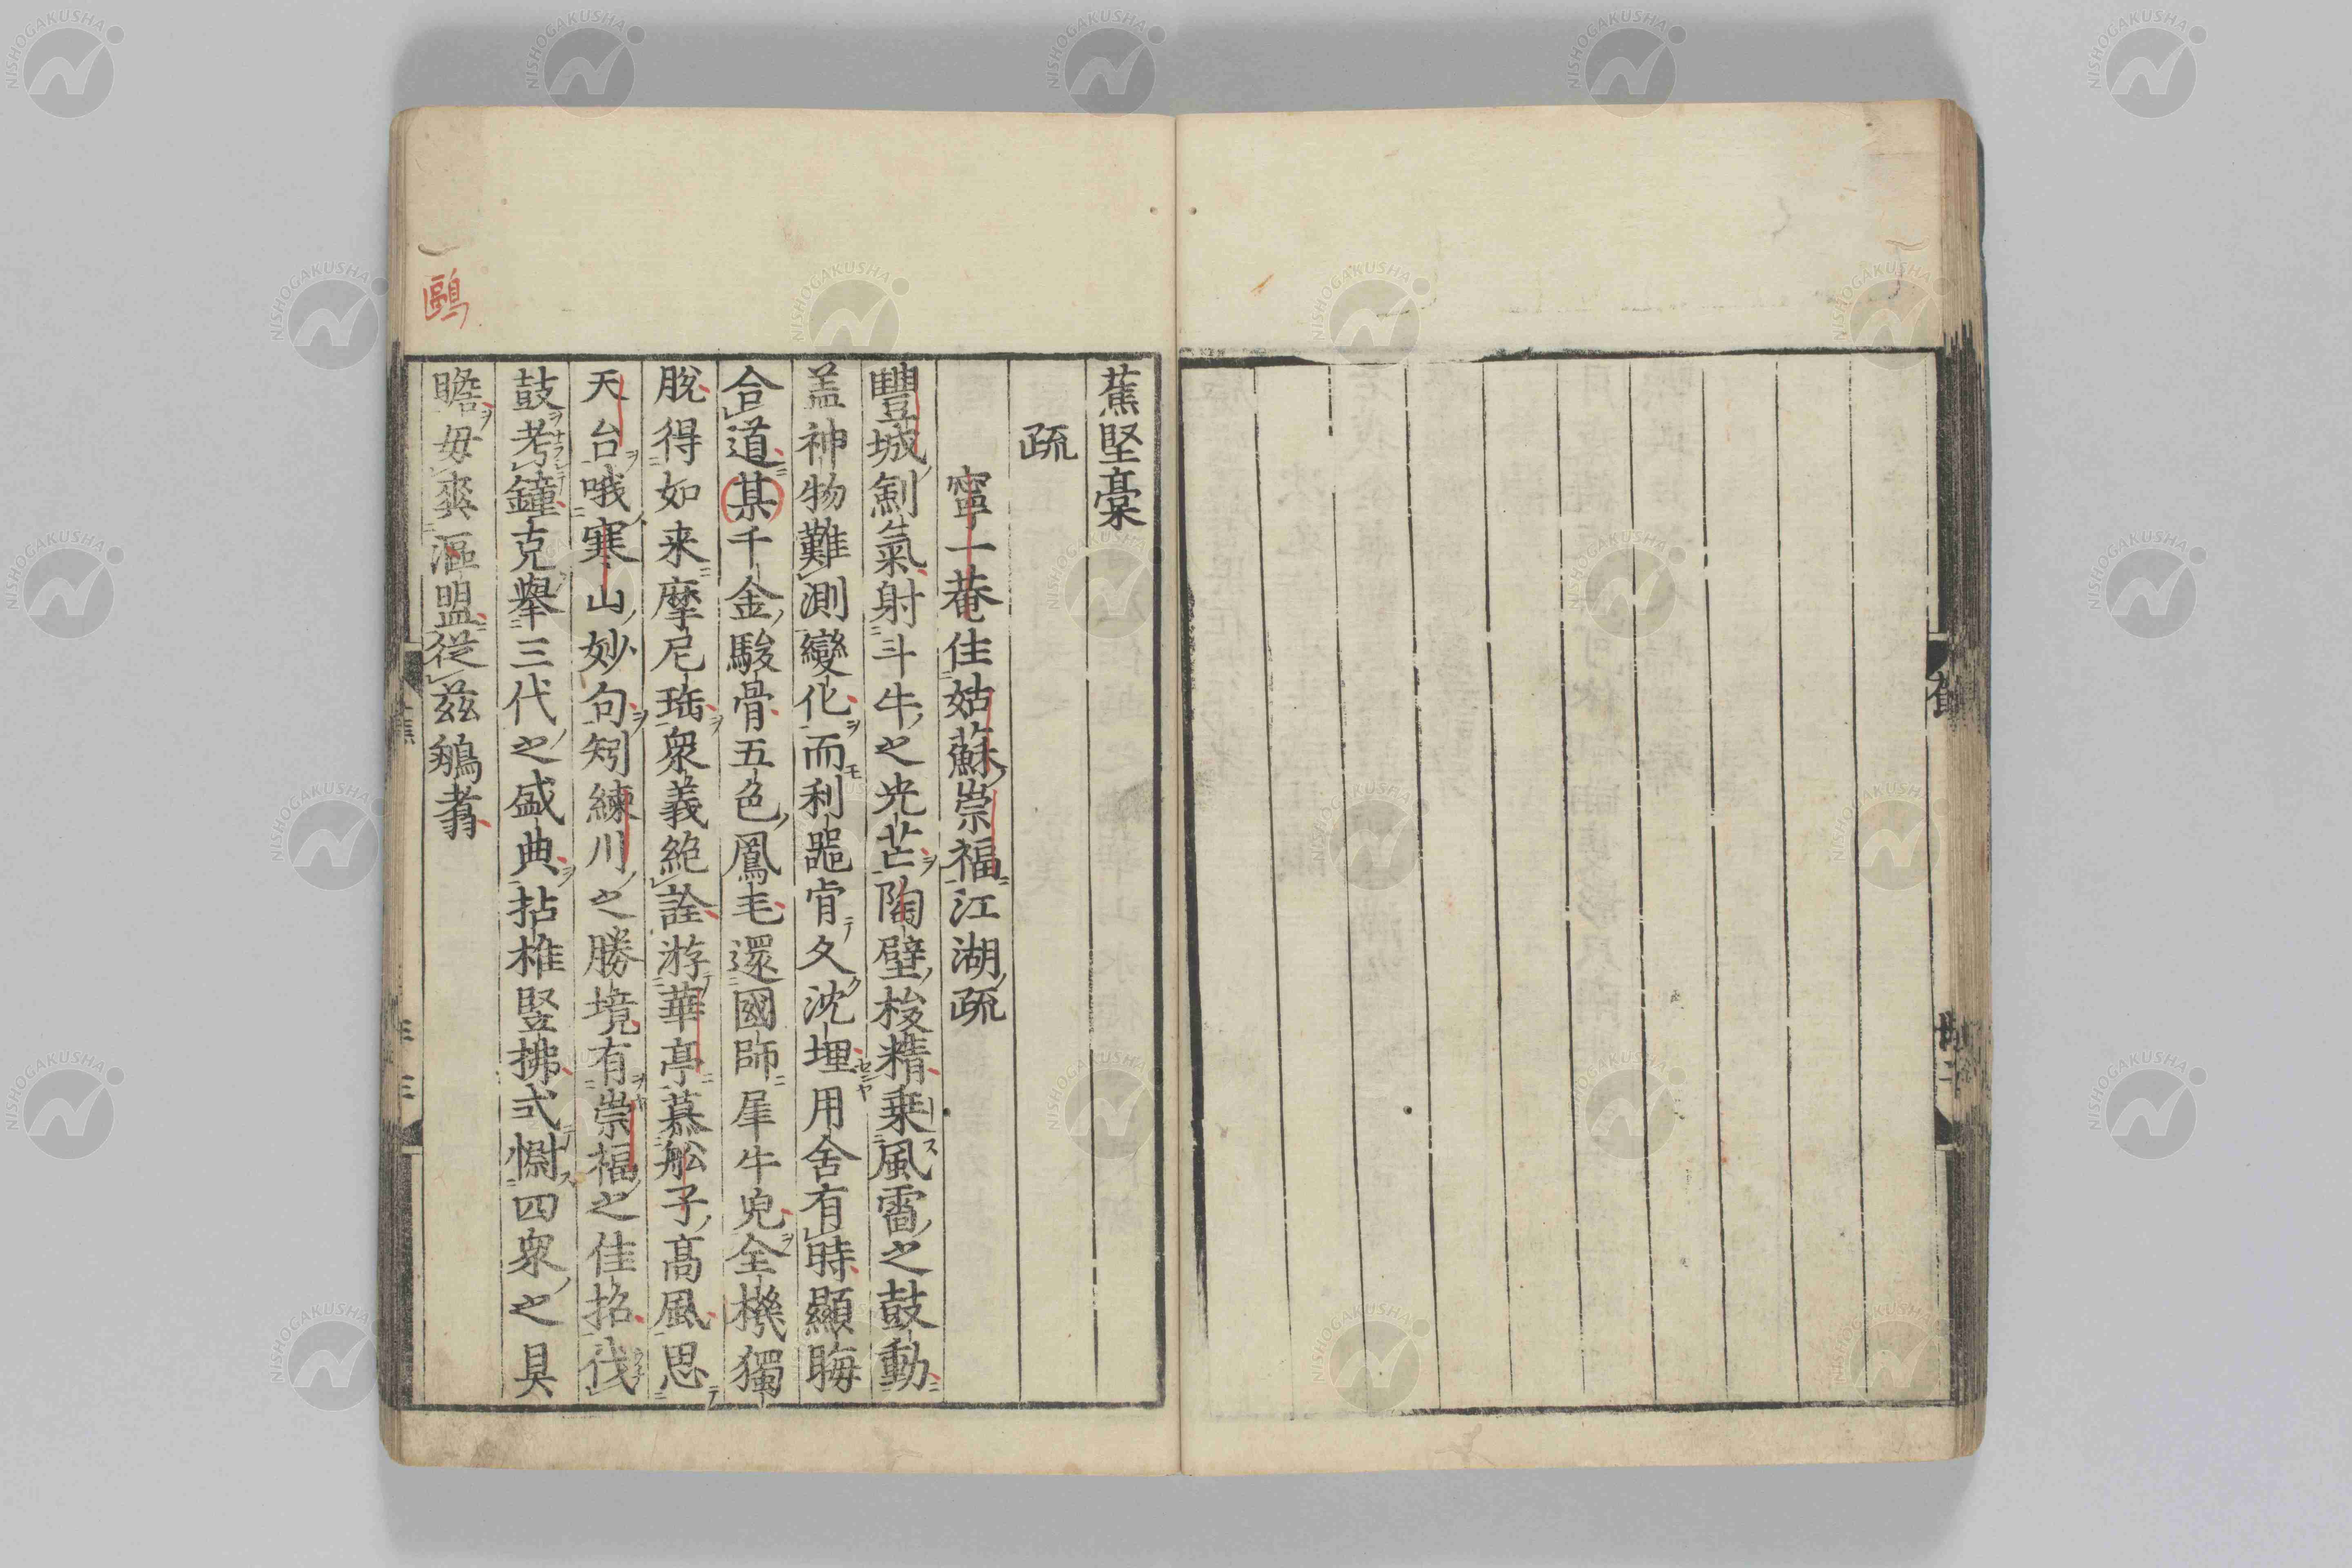 蕉堅藁
疏
寧一菴住姑蘇崇福江湖疏
豐城劍氣射斗牛之光芒陶壁梭精乗風雷之鼓動
盖神物難測變化而利器肯久沈埋用舍有時顯晦
合道某千金駿骨五色鳳毛還國師犀牛兕全機獨
脫得如来摩尼珤衆義絶詮游華亭慕舩子高風思
天台哦寒山妙句矧練川之勝境有崇福之佳招伐
鼓考鐘克舉三代之盛典拈椎竪拂式慰四衆之具
瞻毋爽漚盟從茲鵷翥
鷗